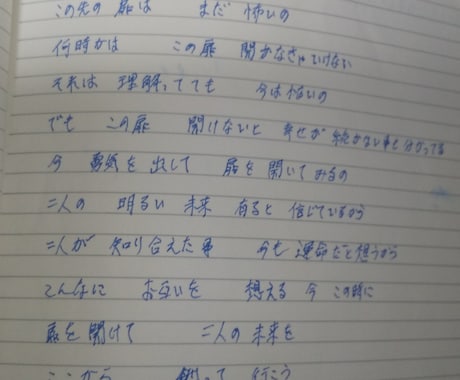 この先の 扉は まだ 怖いの
何時かは この扉 開かなきゃいけない
それは 理解ってても 今は怖いの
でも この扉 開けないと 幸せが 続かない事と分かってる
今 勇気を出して 扉を開いてみるの
二人の 明るい 未来 有ると 信じているから
二人が 知り合えた事 今も 運命だと想うから
こんなに お互いを 想える 今 この時に
扉を開けて 二人の 未来を
ここから 創って 行こう